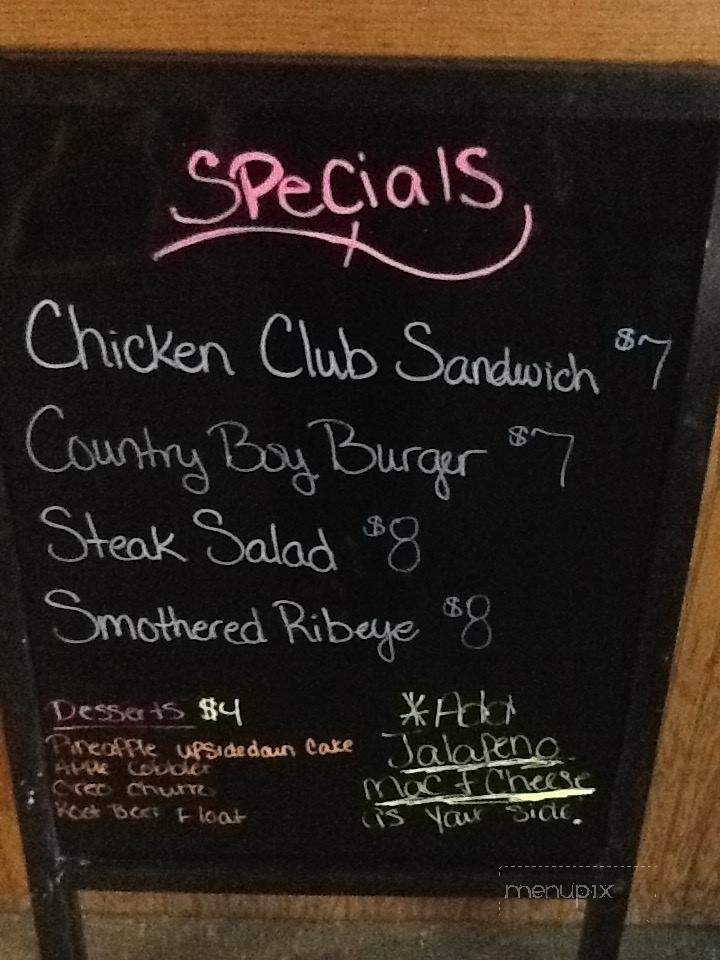 Specials
Chicken Club Sandwich $7
Country Boy Burger $7
Steak Salad $8
Smothered Ribeye $8
Desserts $4
Pineapple upsidedown Cake
Apple Cobbler
Oreo Churro
Root Beer Float
*Add
Jalapeno
Mac & Cheese
as your side.
menupix